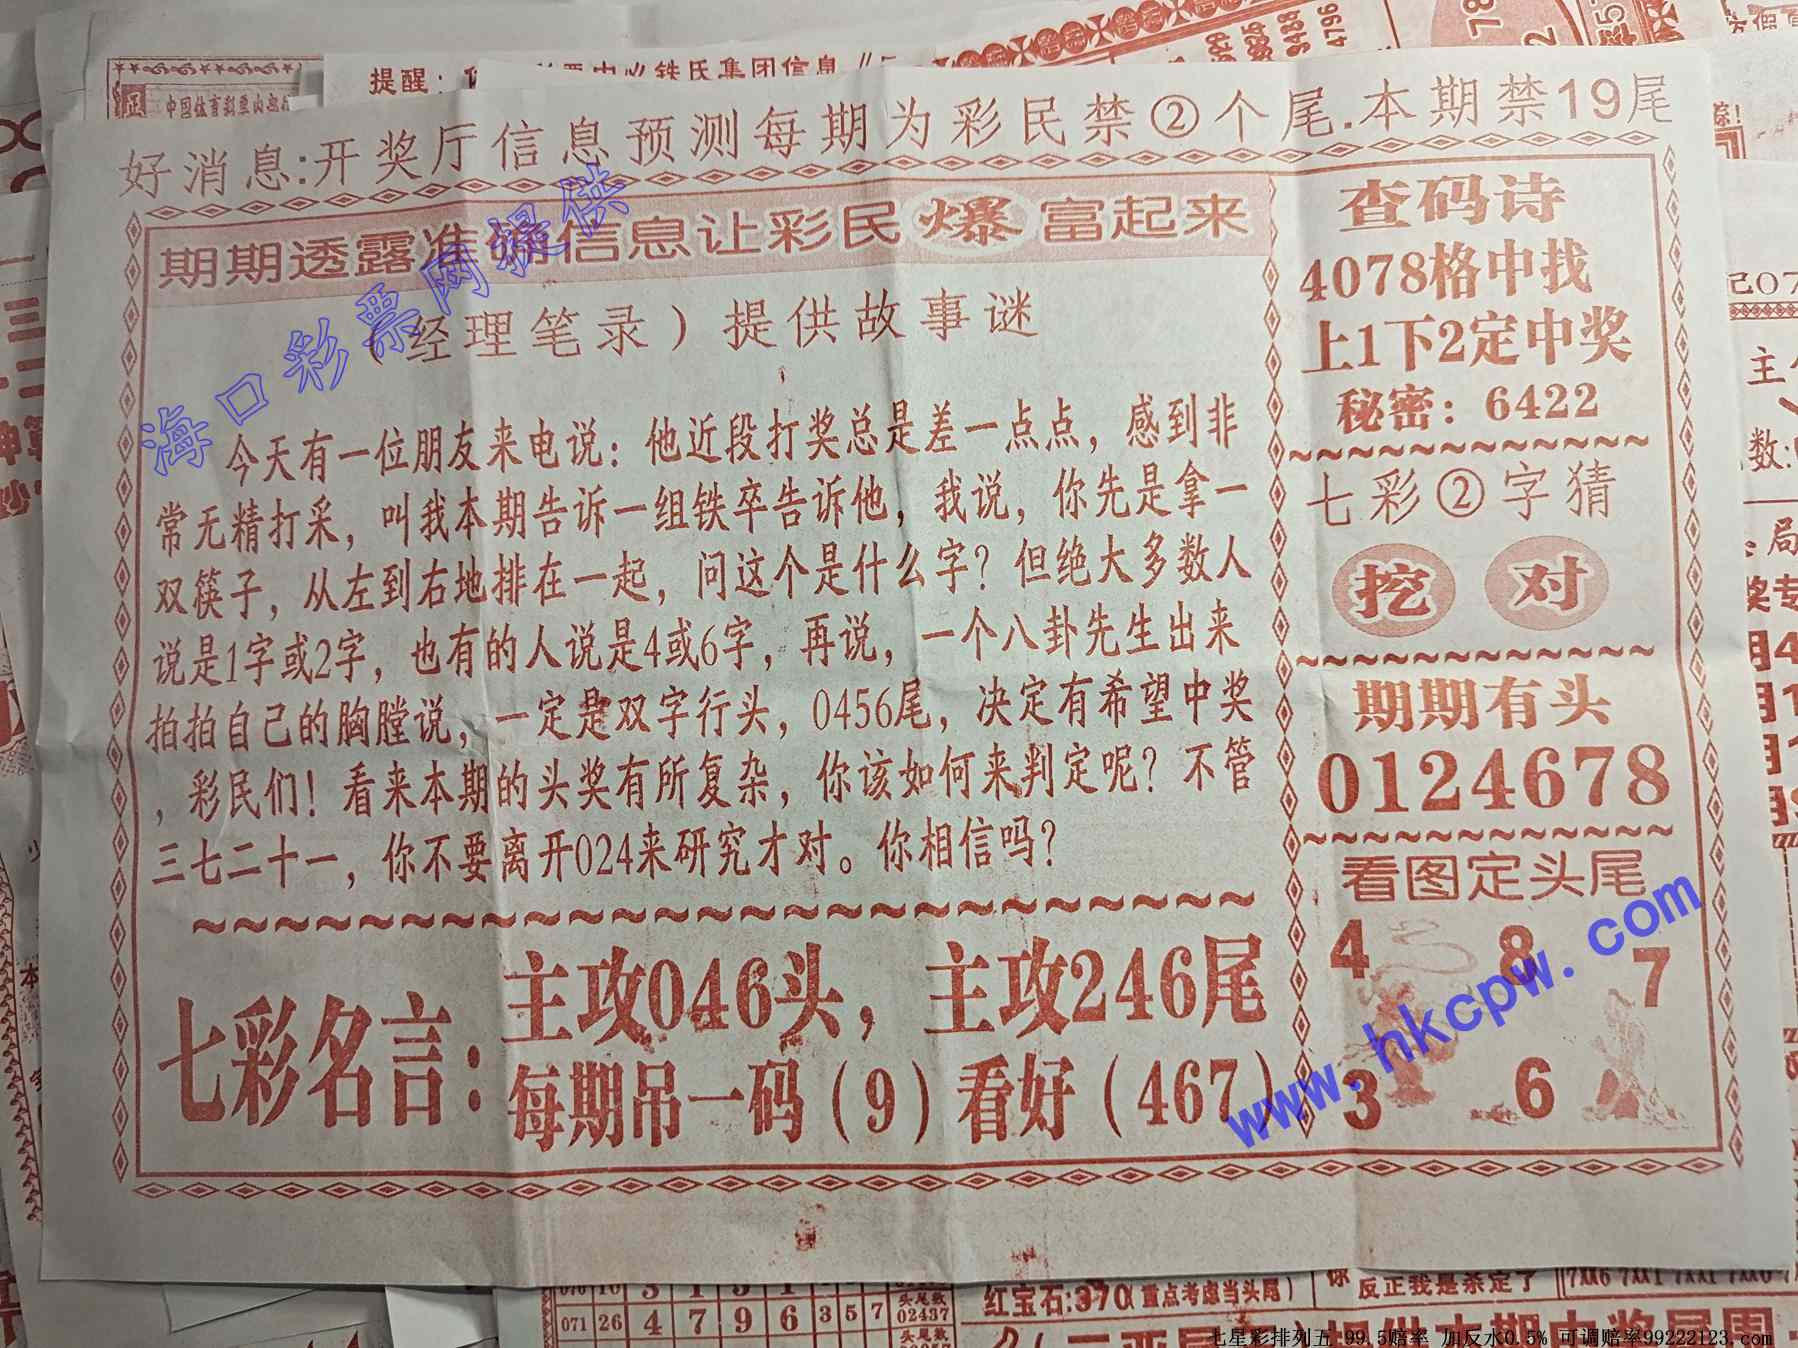 提醒：
中国体育彩票
好消息:开奖厅信息预测每期为彩民禁②个尾.本期禁19尾
期期透露准确信息让彩民爆富起来
（经理笔录）提供故事谜
今天有一位朋友来电说：他近段打奖总是差一点点，感到非
常无精打采，叫我本期告诉一组铁卒告诉他，我说，你先是拿一
双筷子，从左到右地排在一起，问这个是什么字？但绝大多数人
说是1字或2字，也有的人说是4或6字，再说，一个八卦先生出来
拍拍自己的胸膛说，一定是双字行头，0456尾，决定有希望中奖
，彩民们！看来本期的头奖有所复杂，你该如何来判定呢？不管
三七二十一，你不要离开024来研究才对。你相信吗？
七彩名言：
主攻046头，主攻246尾
每期吊一码（9）看好（467）
查码诗
4078格中找
上1下2定中奖
秘密：6422
七彩②字猜
挖 对
期期有头
0124678
看图定头尾
4 8 7
3 6
海口彩票网提供
www.hkcpw.com
071 26 4 7 9 6 3 5 7
头尾数
02437
红宝石:370(重点考虑当头尾)
反正我是杀定了
7XX6 7XX1 7XX1 7XX0
七星彩排列五 99.5赔率 加反水0.5% 可调赔率99222123.com